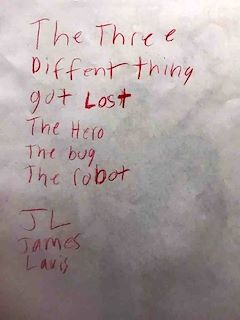 The Three
Diffent thing
got Lost
The Hero
The bug
The robot
JL
James
Lavis